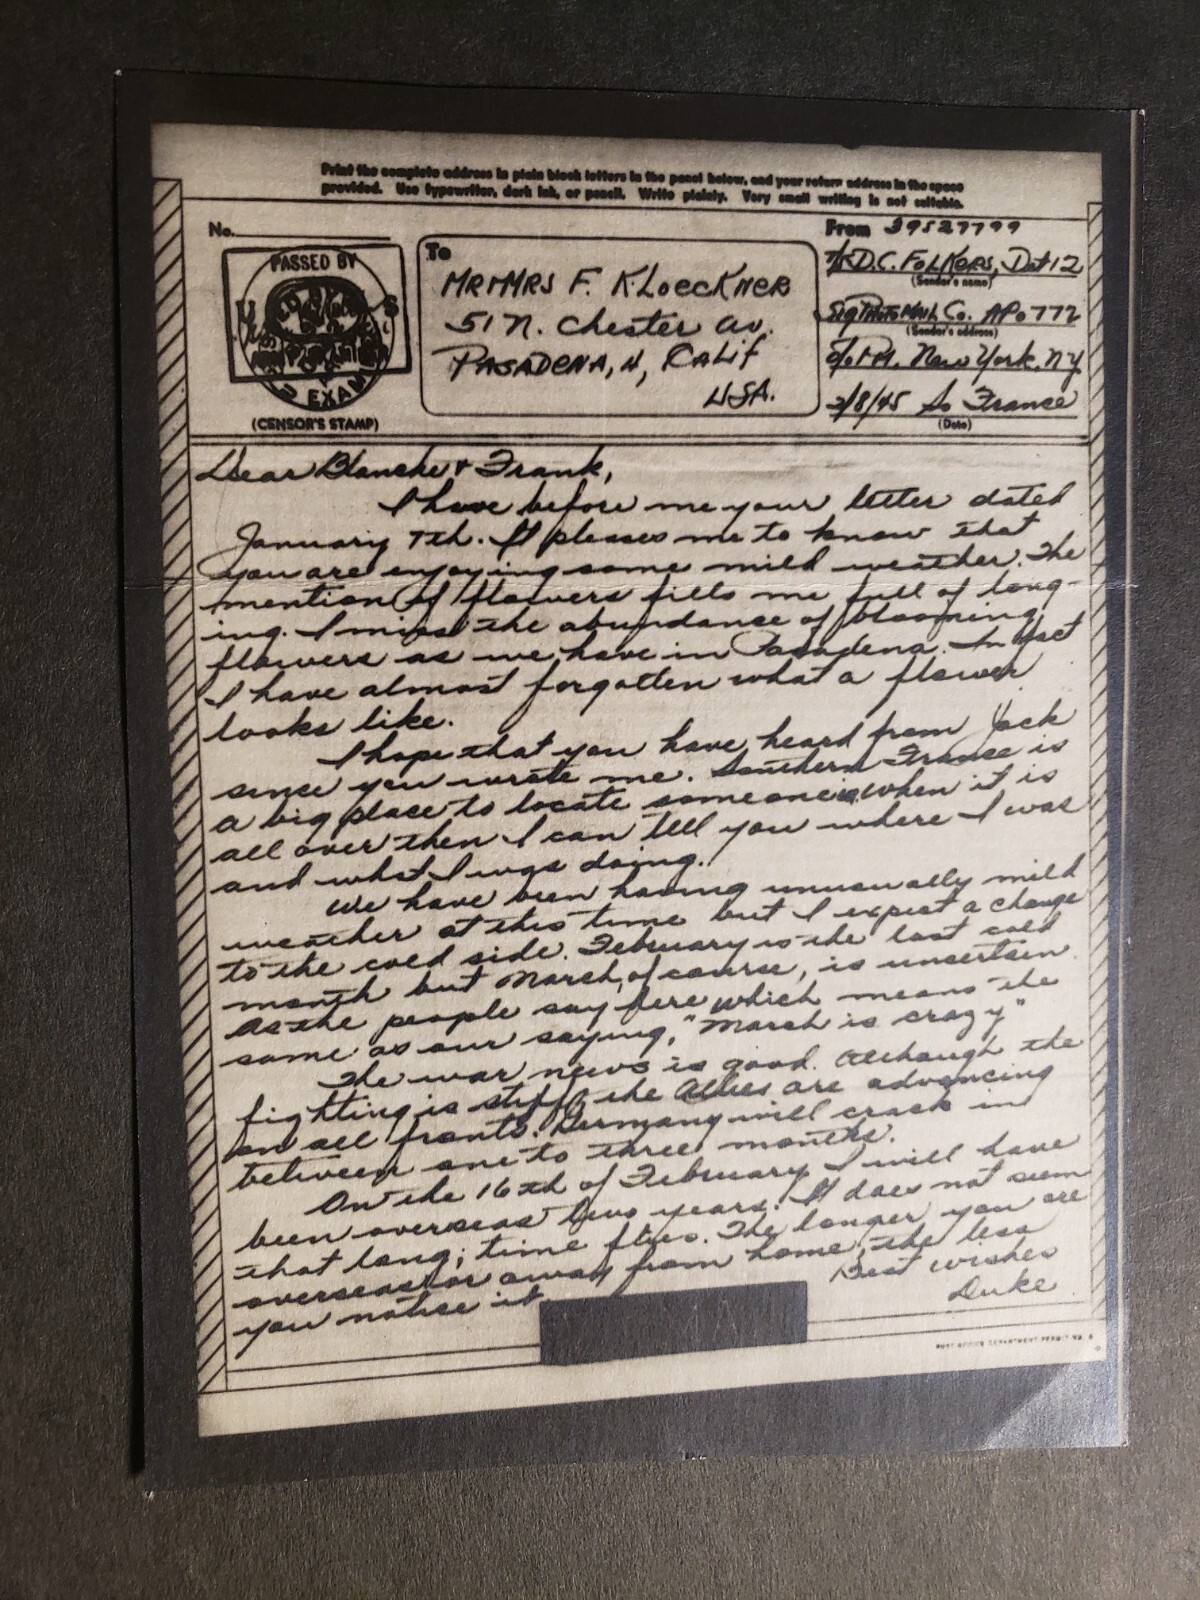 Print the complete address in plain block letters in the panel below, and your return address in the space
provided. Use typewriter, dark ink, or pencil. Write plainly. Very small writing is not suitable.
No.
PASSED BY
U S
EXAMINER
(CENSOR'S STAMP)
To
MR MRS F. KLOECKNER
51 N. Chester av.
PASADENA, 4, CALIF
USA.
From 39527799
D.C. FOLKERS, Det 12
(Sender's name)
Sig Photo Mail Co. APO 772
(Sender's address)
c/o P.M. New York, N.Y
2/8/45 So France
(Date)
Dear Blanche & Frank,
I have before me your letter dated
January 7th. It pleases me to know that
you are enjoying some mild weather. The
mention of flowers fills me full of long-
ing. I miss the abundance of blooming
flowers as we have in Pasadena. In fact
I have almost forgotten what a flower
looks like.
I hope that you have heard from Jack
since you wrote me. Southern France is
a big place to locate someone in when it is
all over then I can tell you where I was
and what I was doing.
We have been having unusually mild
weather at this time but I expect a change
to the cold side. February is the last cold
month but March, of course, is uncertain.
As the people say here which means the
same as our saying, "March is crazy"
The war news is good. Although the
fighting is stiff the Allies are advancing
on all fronts. Germany will crack in
between one to three months.
On the 16th of February I will have
been overseas two years. It does not seem
that long; time flies. The longer you are
overseas or away from home, the less
you notice it
Best wishes
Duke
POST OFFICE DEPARTMENT PERMIT NO.